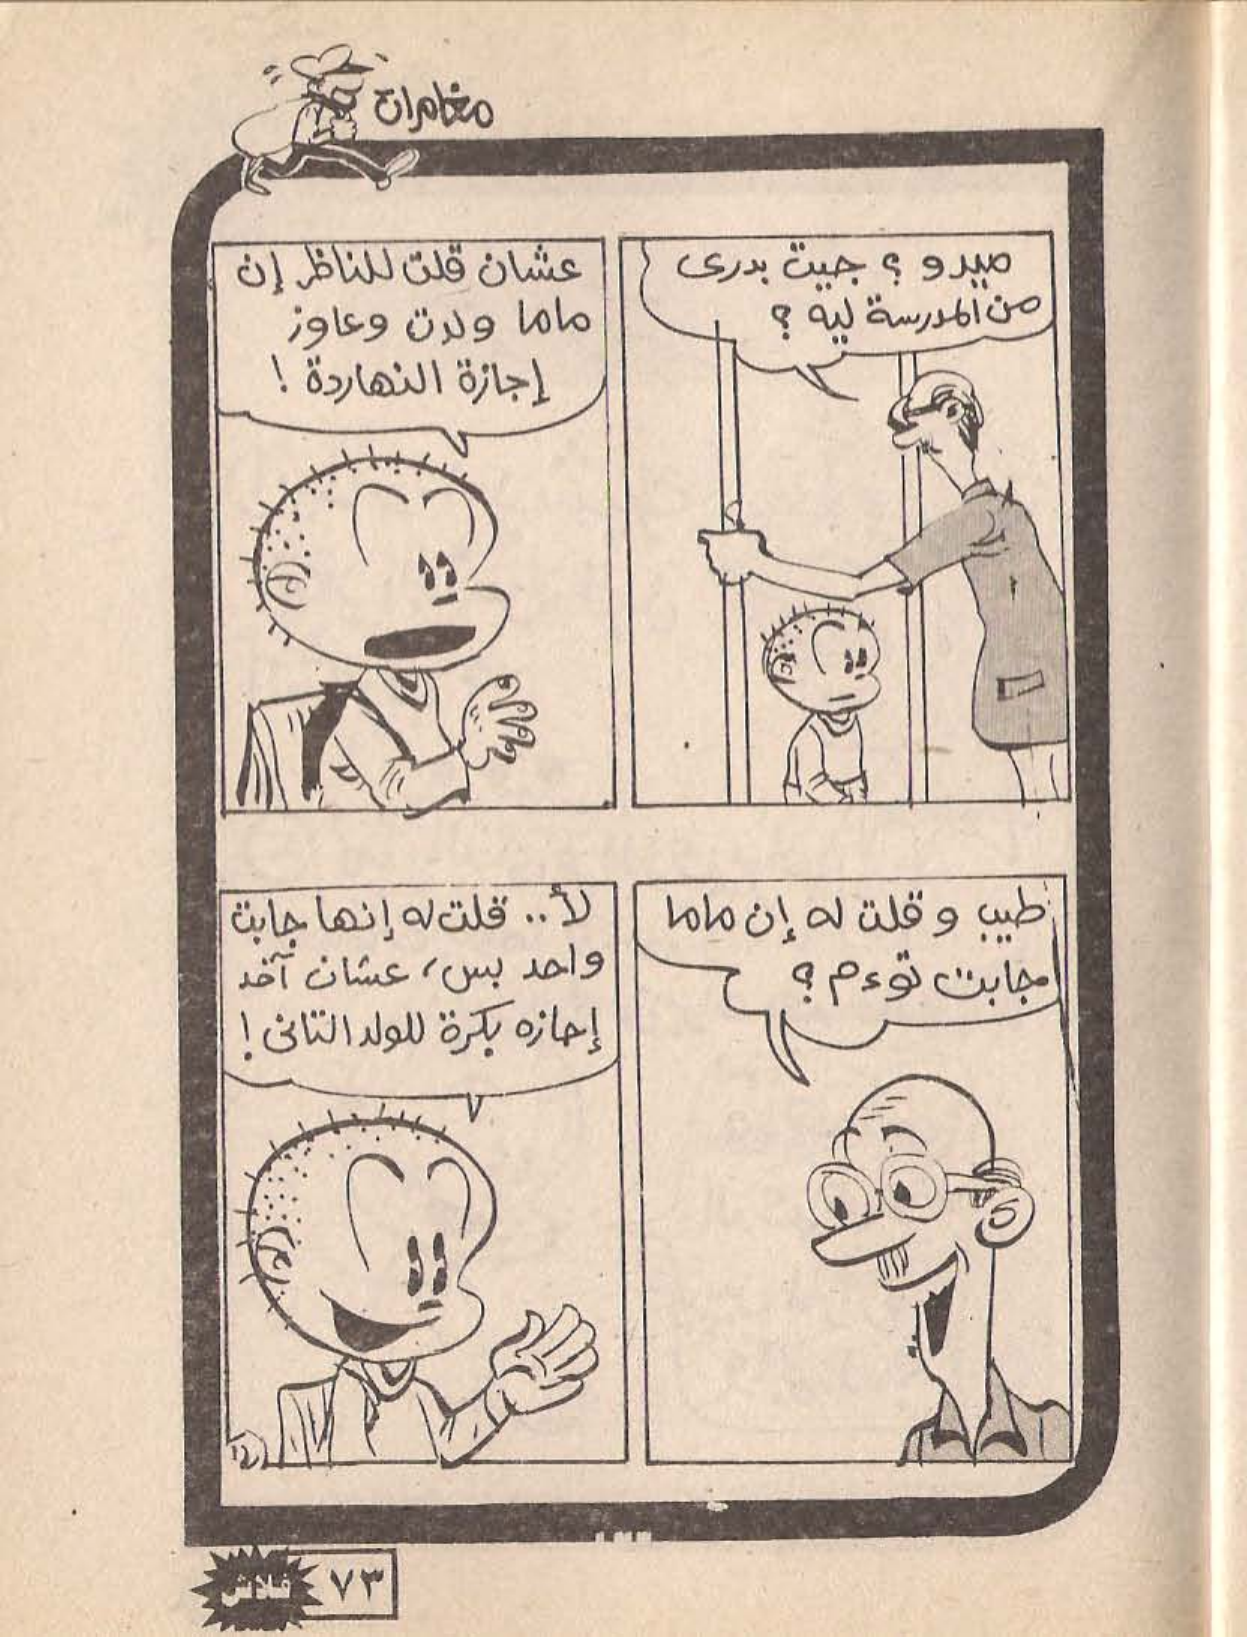 مغامرات
ميدو ؟ جيت بدرى
من المدرسة ليه ؟
عشان قلت للناظر إن
ماما ولدت وعاوز
إجازة النهاردة !
طيب و قلت له إن ماما
جابت توءم ؟
لأ.. قلت له إنها جابت
واحد بس، عشان آخد
إجازه بكرة للولد التانى !
٧٣
فلاش